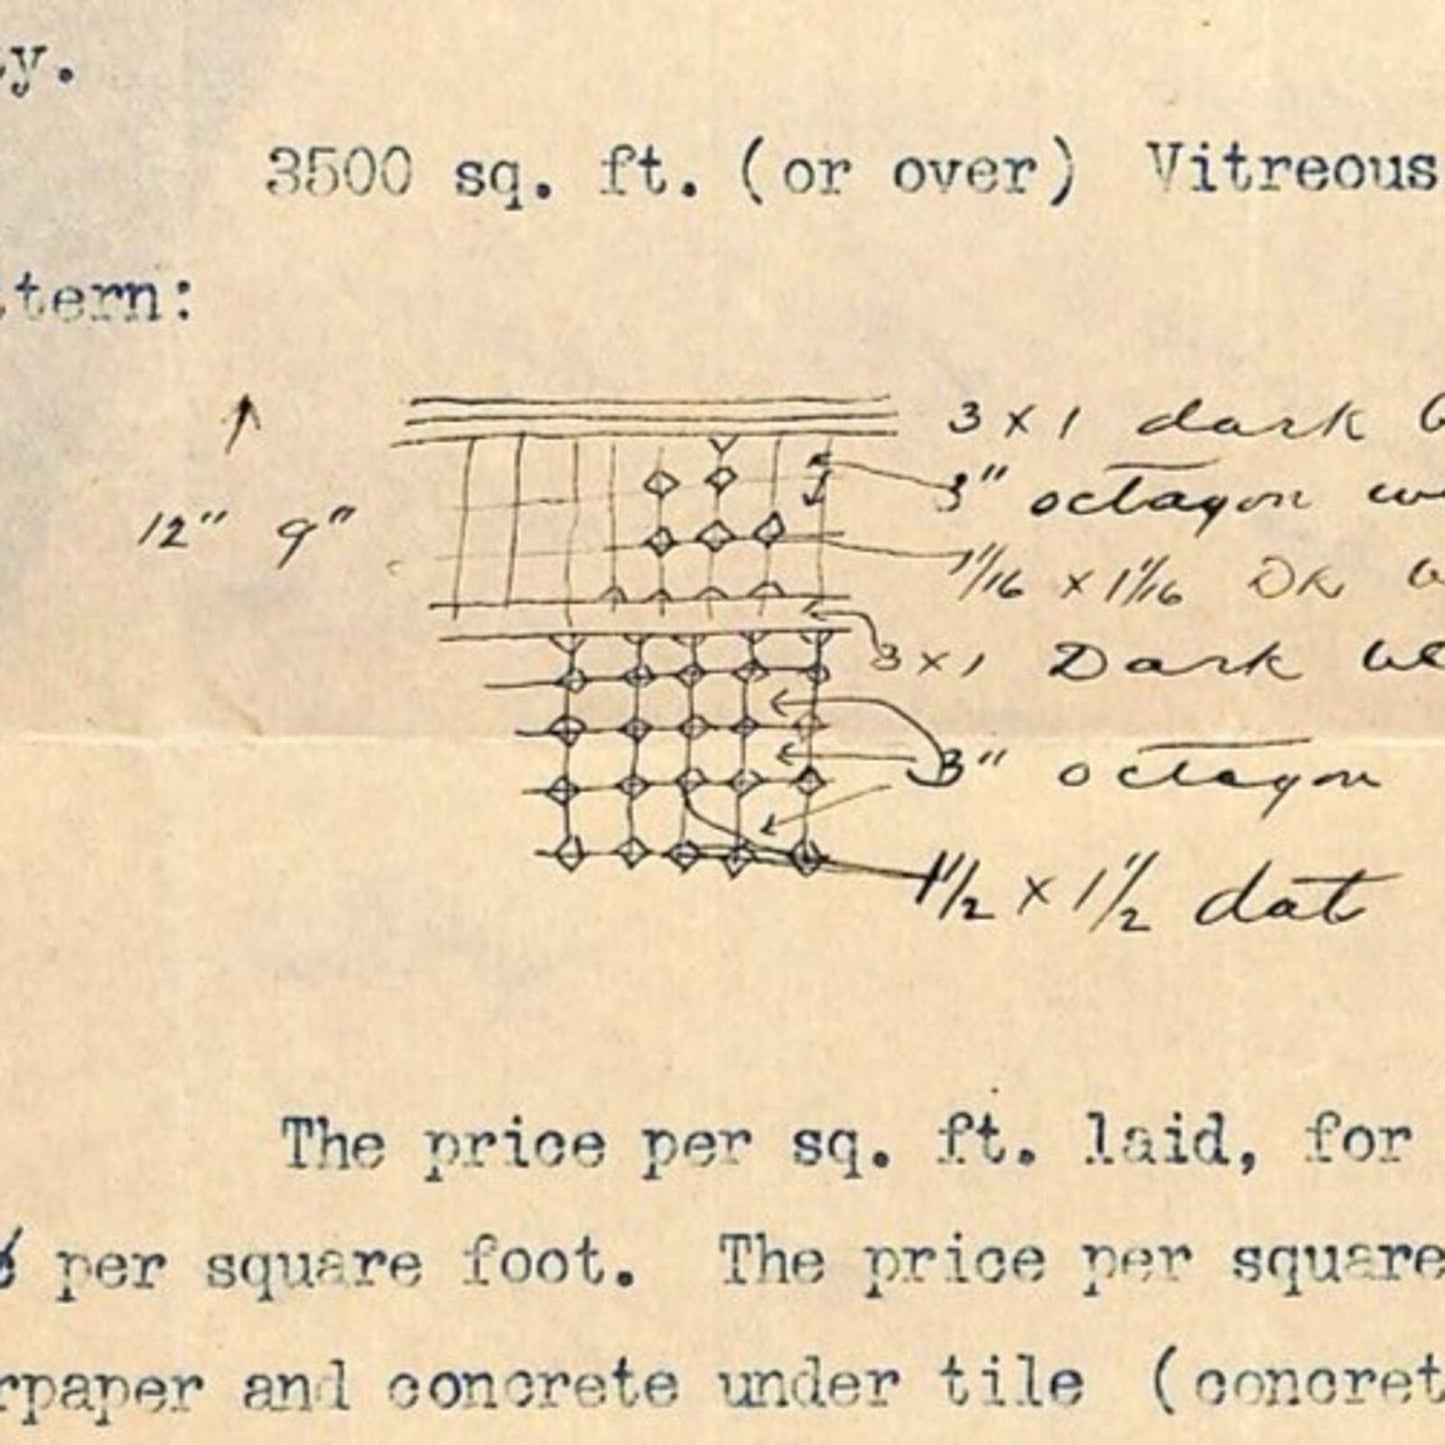 ty.
3500 sq. ft. (or over) Vitreous
ttern:
3 x 1 dark b
3" octagon w
12" 9"
1 1/16 x 1 1/16 Dk b
3 x 1 Dark bl
3" octagon
1 1/2 x 1 1/2 dot
The price per sq. ft. laid, for
per square foot. The price per square
rpaper and concrete under tile (concret